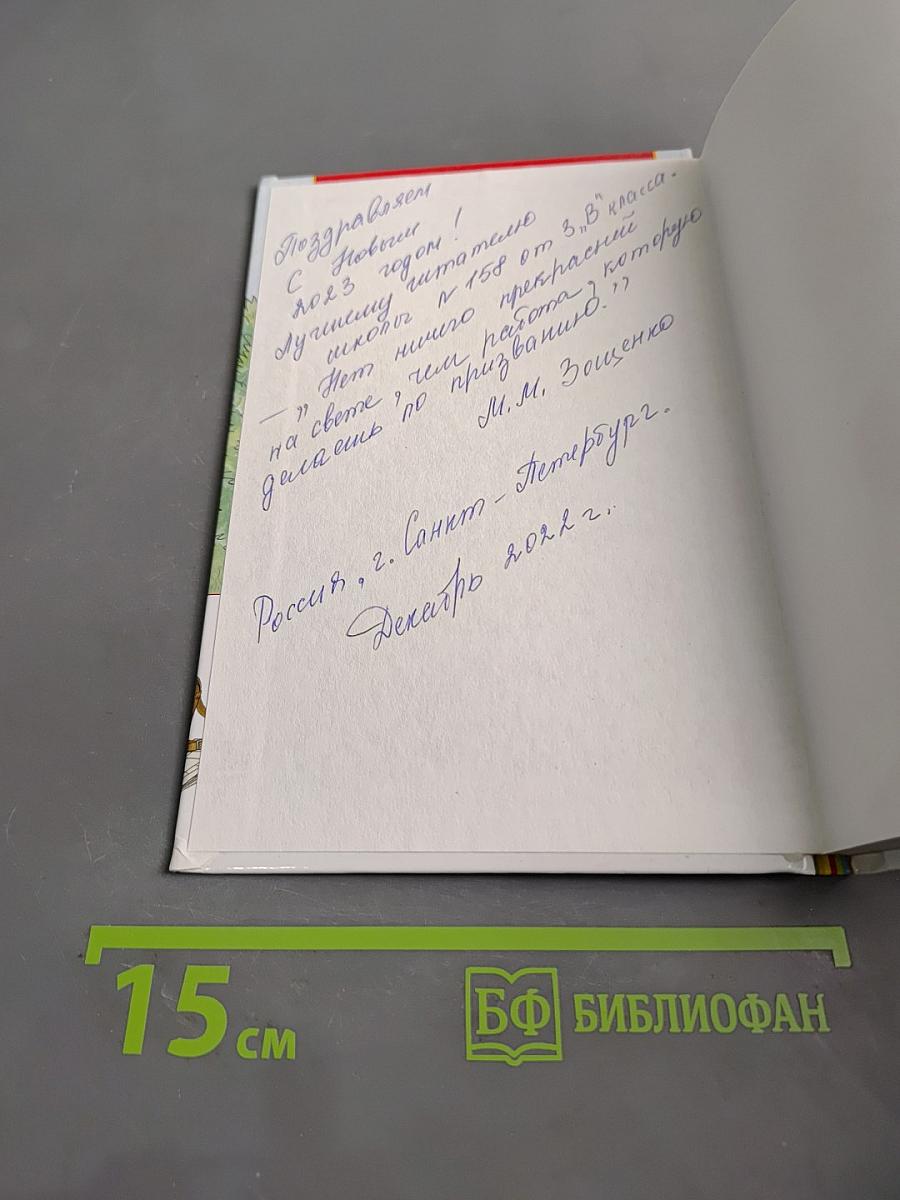 Поздравляем
С Новым
2023 годом!
Лучшему читателю
школы № 158 от 3„В" класса.
— „Нет ничего прекрасней
на свете, чем работа, которую
делаешь по призванию."
М.М. Зощенко
Россия, г. Санкт-Петербург.
Декабрь 2022 г.
15 см
БФ БИБЛИОФАН